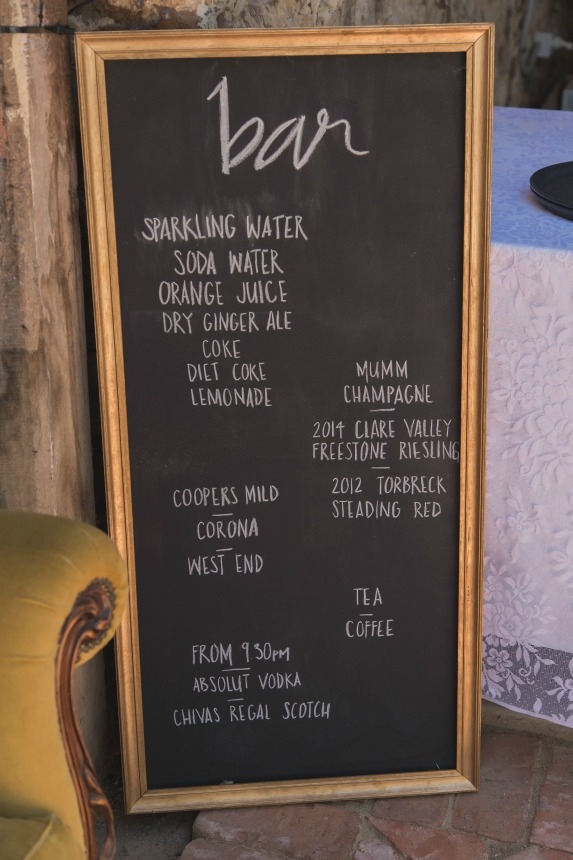 bar
SPARKLING WATER
SODA WATER
ORANGE JUICE
DRY GINGER ALE
COKE
DIET COKE
LEMONADE
COOPERS MILD
CORONA
WEST END
FROM 9 30PM
ABSOLUT VODKA
CHIVAS REGAL SCOTCH
MUMM
CHAMPAGNE
2014 CLARE VALLEY
FREESTONE RIESLING
2012 TORBRECK
STEADING RED
TEA
COFFEE